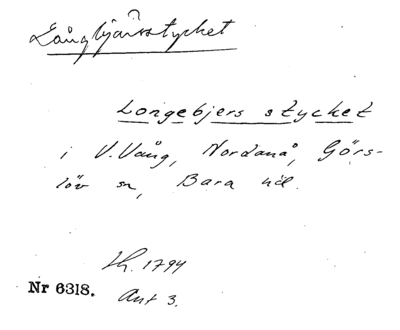 Långbjärsstycket
Longebjers stycket
i V. Vång, Nordanå, Görs-
löv sn, Bara hd.
Lh. 1794
Nr 6318. Akt 3.